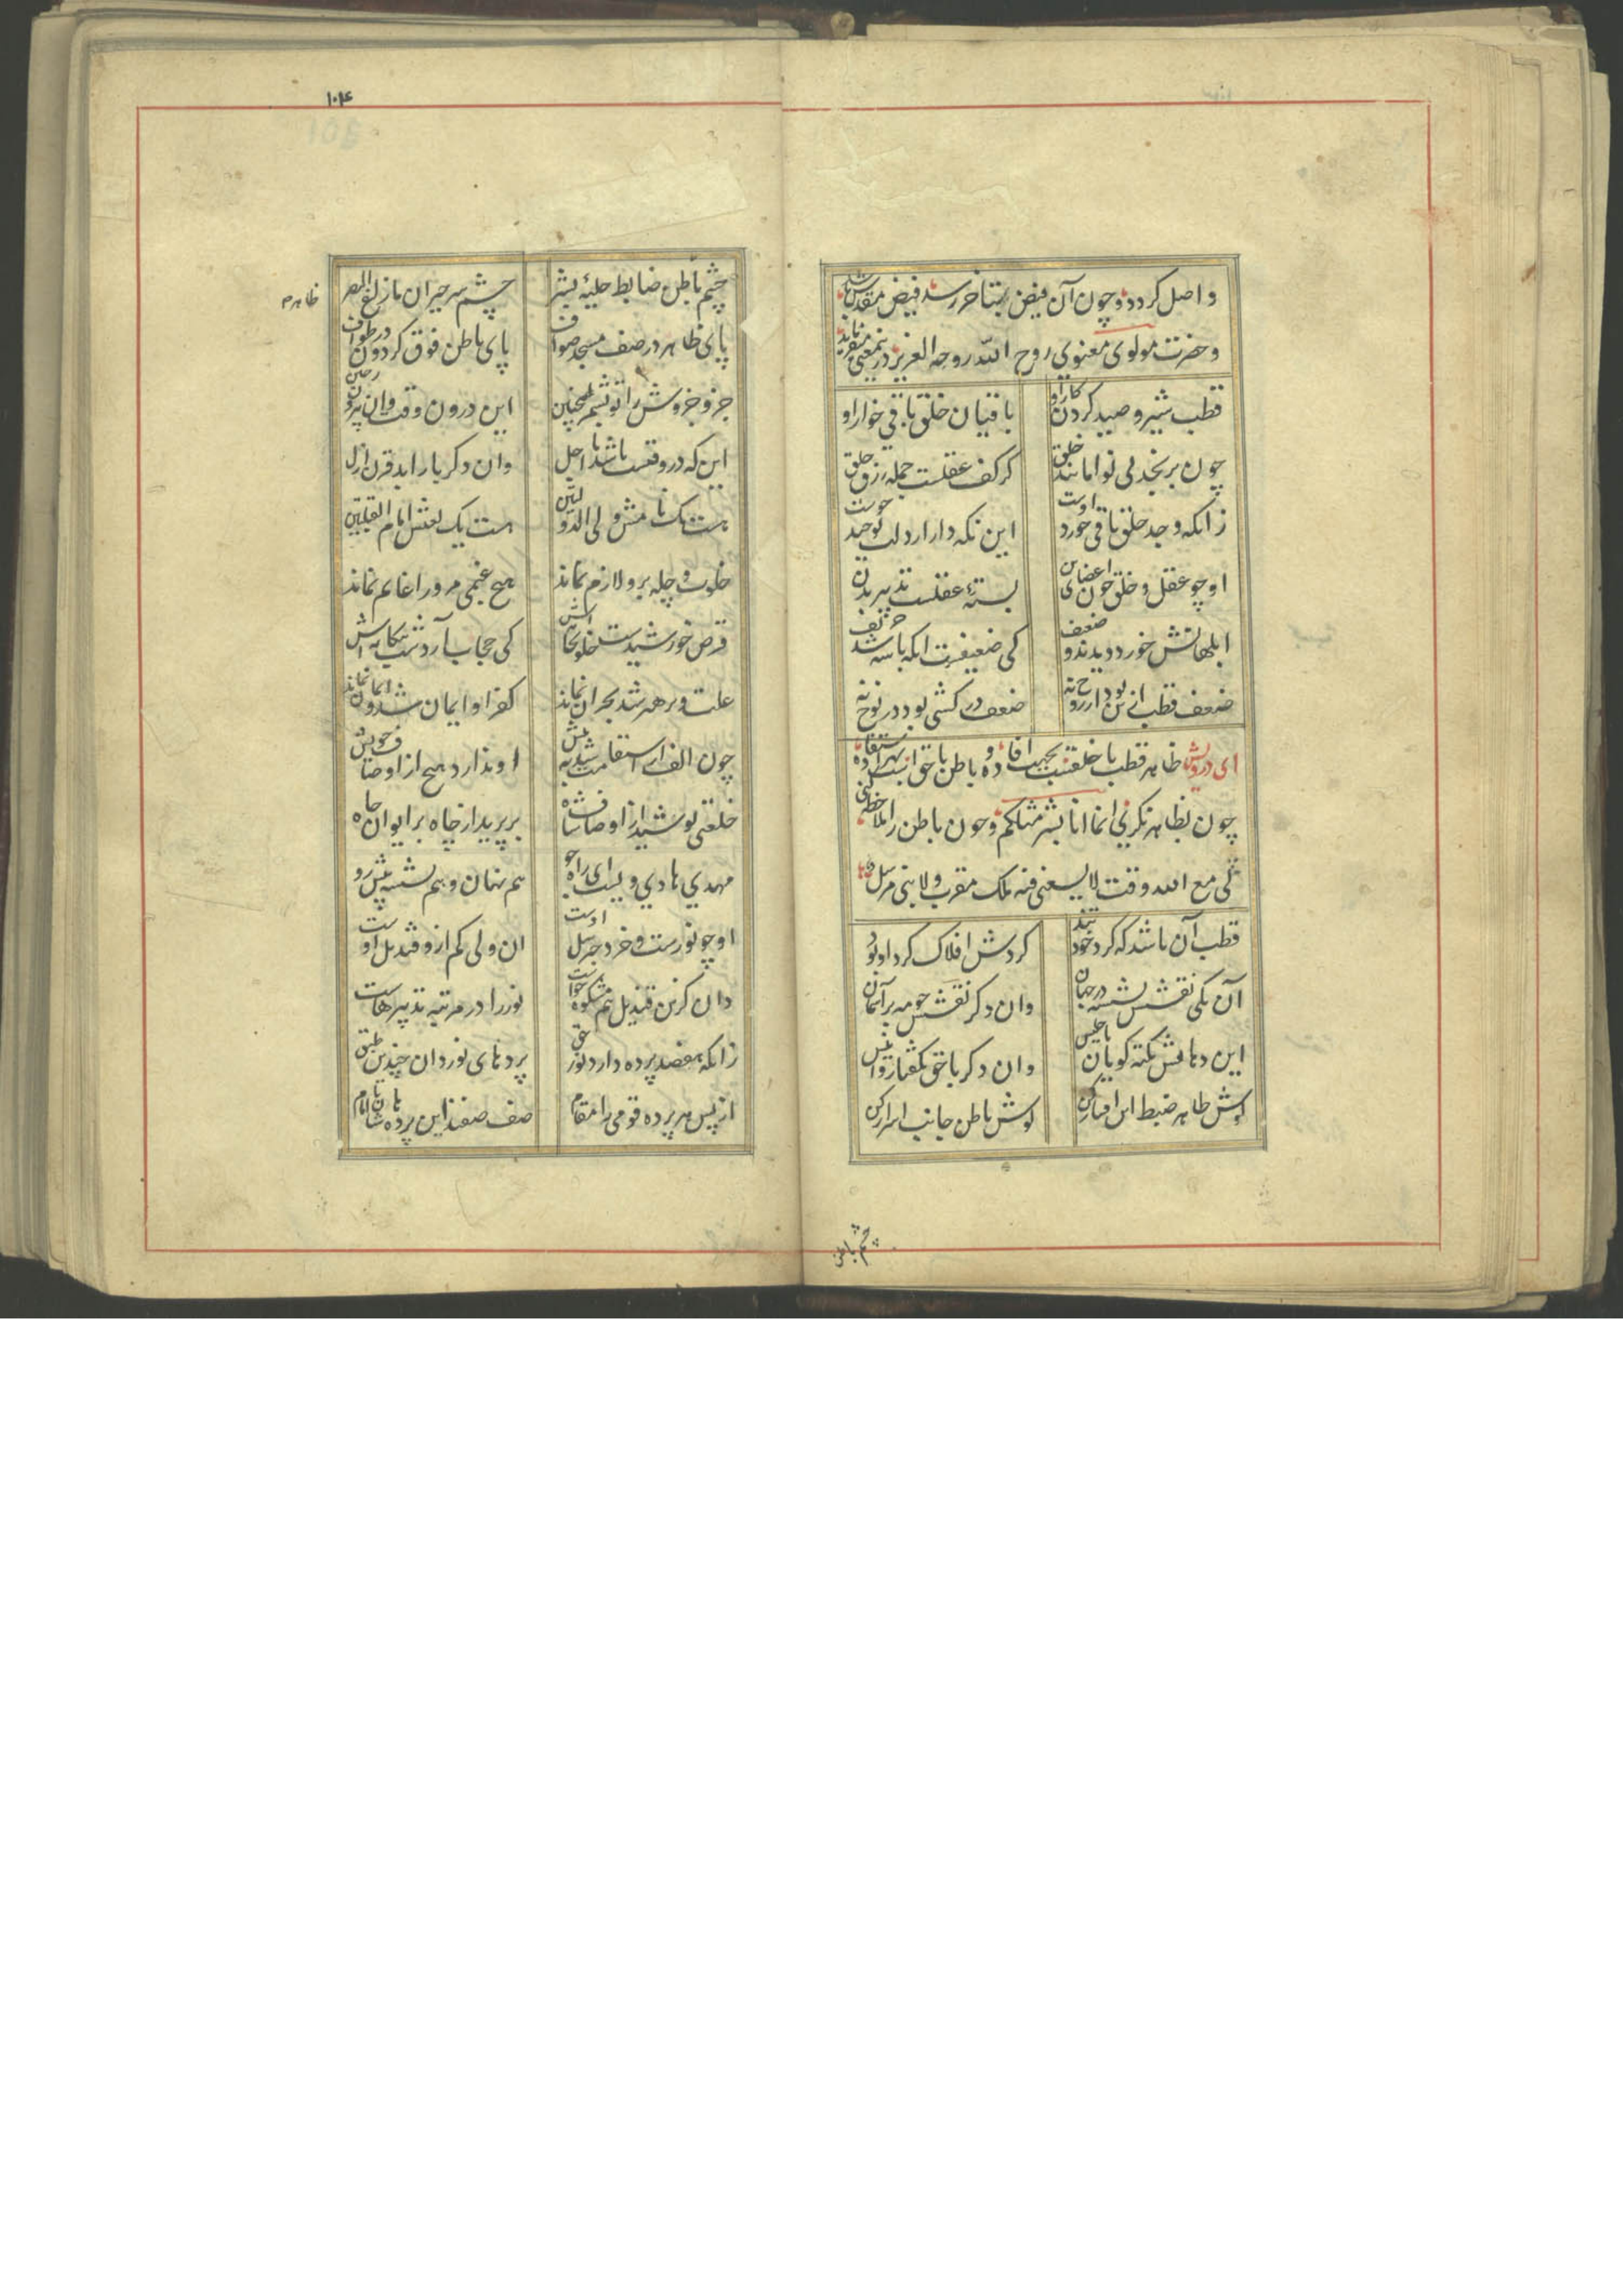 واصل کردد وچون آن فیض بتناخر رسد فیض مقدس باشد
وحضرت مولوی معنوی روح الله روحه العزیز درینمعنی میفرماید
قطب شیر و صید کردن کار او
باقیان خلق باقی خوار او
چون برنجد بی نوا مانند خلق
کز کف عقلست جمله رزق حلق
زانکه وجد خلق باقی خورد اوست
این نکه دار ار دل توحید جوست
او چو عقل و خلق چون اعضای تن
بستهٔ عقلست تدبیر بدن
ابلهانش خورد دیدند و ضعف
کی ضعیفست انکه باشه شد حریف
ضعف قطب از تن بود از روح نه
ضعف در کشتی بود در نوح نه
ای درویش ظاهر قطب با خلقت بجهت افاده و باطن با حق است بهر استفاده
چون بظاهر نکری انما انا بشر مثلکم وچون باطن را ملاحظه کنی
لی مع الله وقت لا یسعنی فیه ملک مقرب ولا نبی مرسل
قطب آن باشد که کرد خود تند
کردش افلاک کرد او بود
آن یکی نقشش نشسته در جهان
وان دکر نقشش چو مه بر آسمان
این دهانش نکته کویان با جلیس
وان دکر با حق بکفتار و انیس
کوش ظاهر ضبط این افسانه کن
کوش باطن جانب اسرار کن
چشم باطن
۱۰۴
چشم باطن ضابط حلیهٔ بشر
چشم سر حیران ما زاغ البصر
ظاهر
پای ظاهر در صف مسجد صواف
پای باطن فوق کردون در طواف
جزو جزوش را تو بشمر همچنین
این درون وقت وان بیرون حین
این که در وقتست باشد تا اجل
وان دکر یار ابد قرن ازل
هست یک نامش ولی الدولتین
هست یک نعتش امام القبلتین
خلوت و چله برو لازم نماند
هیچ غیمی مر ورا غایم نماند
قرص خورشیدست خلوتخانه اش
کی حجاب آرد شب بیکانه اش
علت و پرهیز شد بحران نماند
کفر او ایمان شد و کفران نماند
چون الف از استقامت شد به پیش
او ندارد هیچ از اوصاف خویش
خلعتی پوشید از اوصاف شاه
بر پرید از چاه بر ایوان جاه
مهدی و هادی ویست ای راه جو
هم نهان و هم نشسته پیش رو
او چو نورست و خرد جبریل اوست
ان ولی کم ازو قندیل اوست
وان کزین قندیل کم مشکوة ماست
نور را در مرتبه تدبیرهاست
زانکه هفصد پرده دارد نور حق
پردهای نور دان چندین طبق
از پس هر پرده قومی را مقام
صف صفند این پرده هاشان تا امام